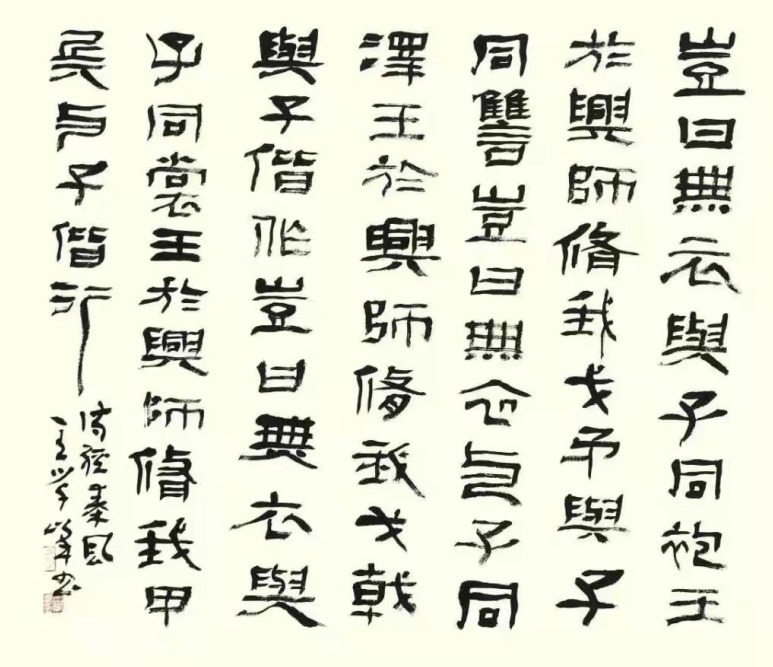 豈曰無衣與子同袍王
於興師脩我戈矛與子
同讐豈曰無衣与子同
澤王於興師脩我戈戟
與子偕作豈曰無衣與
子同裳王於興師脩我甲
兵与子偕行
诗经秦风
王学峰书